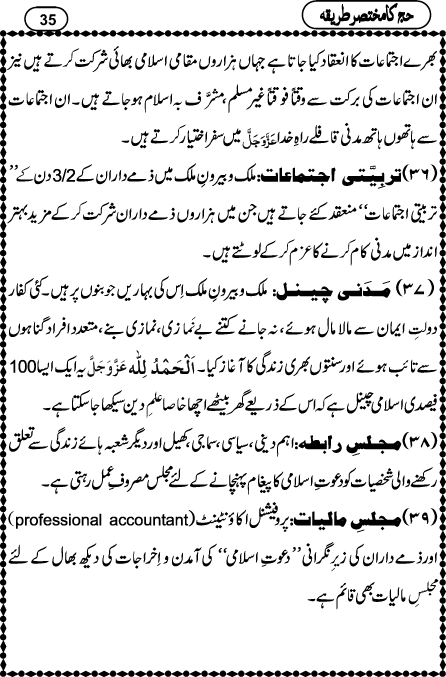 حج کا مختصر طریقہ
35
بھرے اجتماعات کا انعقاد کیا جاتا ہے جہاں ہزاروں مقامی اسلامی بھائی شرکت کرتے ہیں نیز
ان اجتماعات کی برکت سے وقتاً فوقتاً غیر مسلم مشرَّف بہ اسلام ہو جاتے ہیں۔ ان اجتماعات
سے ہاتھوں ہاتھ مدنی قافلے راہِ خدا عَزَّوَجَلَّ میں سفر اختیار کرتے ہیں۔
(۳۶) تربِیَّتی اجتماعات: ملک و بیرونِ ملک میں ذمے داران کے 3/2 دن کے ’’
تربیتی اجتماعات‘‘ منعقد کئے جاتے ہیں جن میں ہزاروں ذمے داران شرکت کر کے مزید بہتر
انداز میں مدنی کام کرنے کا عزم کر کے لوٹتے ہیں۔
(۳۷) مَدَنی چینل: ملک و بیرونِ ملک اِس کی بہاریں جوبنوں پر ہیں۔ کئی کفار
دولتِ ایمان سے مالا مال ہوئے، نہ جانے کتنے بے نَمازی، نمازی بنے، متعدد افراد گناہوں
سے تائب ہوئے اور سنتوں بھری زندگی کا آغاز کیا۔ اَلْحَمْدُ لِلّٰہ عَزَّوَجَلَّ یہ ایک ایسا 100
فیصدی اسلامی چینل ہے کہ اس کے ذریعے گھر بیٹھے اچھا خاصا علمِ دین سیکھا جا سکتا ہے۔
(۳۸) مجلسِ رابطہ: اہم دینی، سیاسی، سماجی، کھیل اور دیگر شعبہ ہائے زندگی سے تعلق
رکھنے والی شخصیات کو دعوتِ اسلامی کا پیغام پہنچانے کے لئے مجلس مصروفِ عمل رہتی ہے۔
(۳۹) مجلسِ مالیات: پروفیشنل اکاؤنٹینٹ (professional accountant)
اور ذمے داران کی زیرِ نگرانی ’’دعوتِ اسلامی‘‘ کی آمدن و اِخراجات کی دیکھ بھال کے لئے
مجلسِ مالیات بھی قائم ہے۔